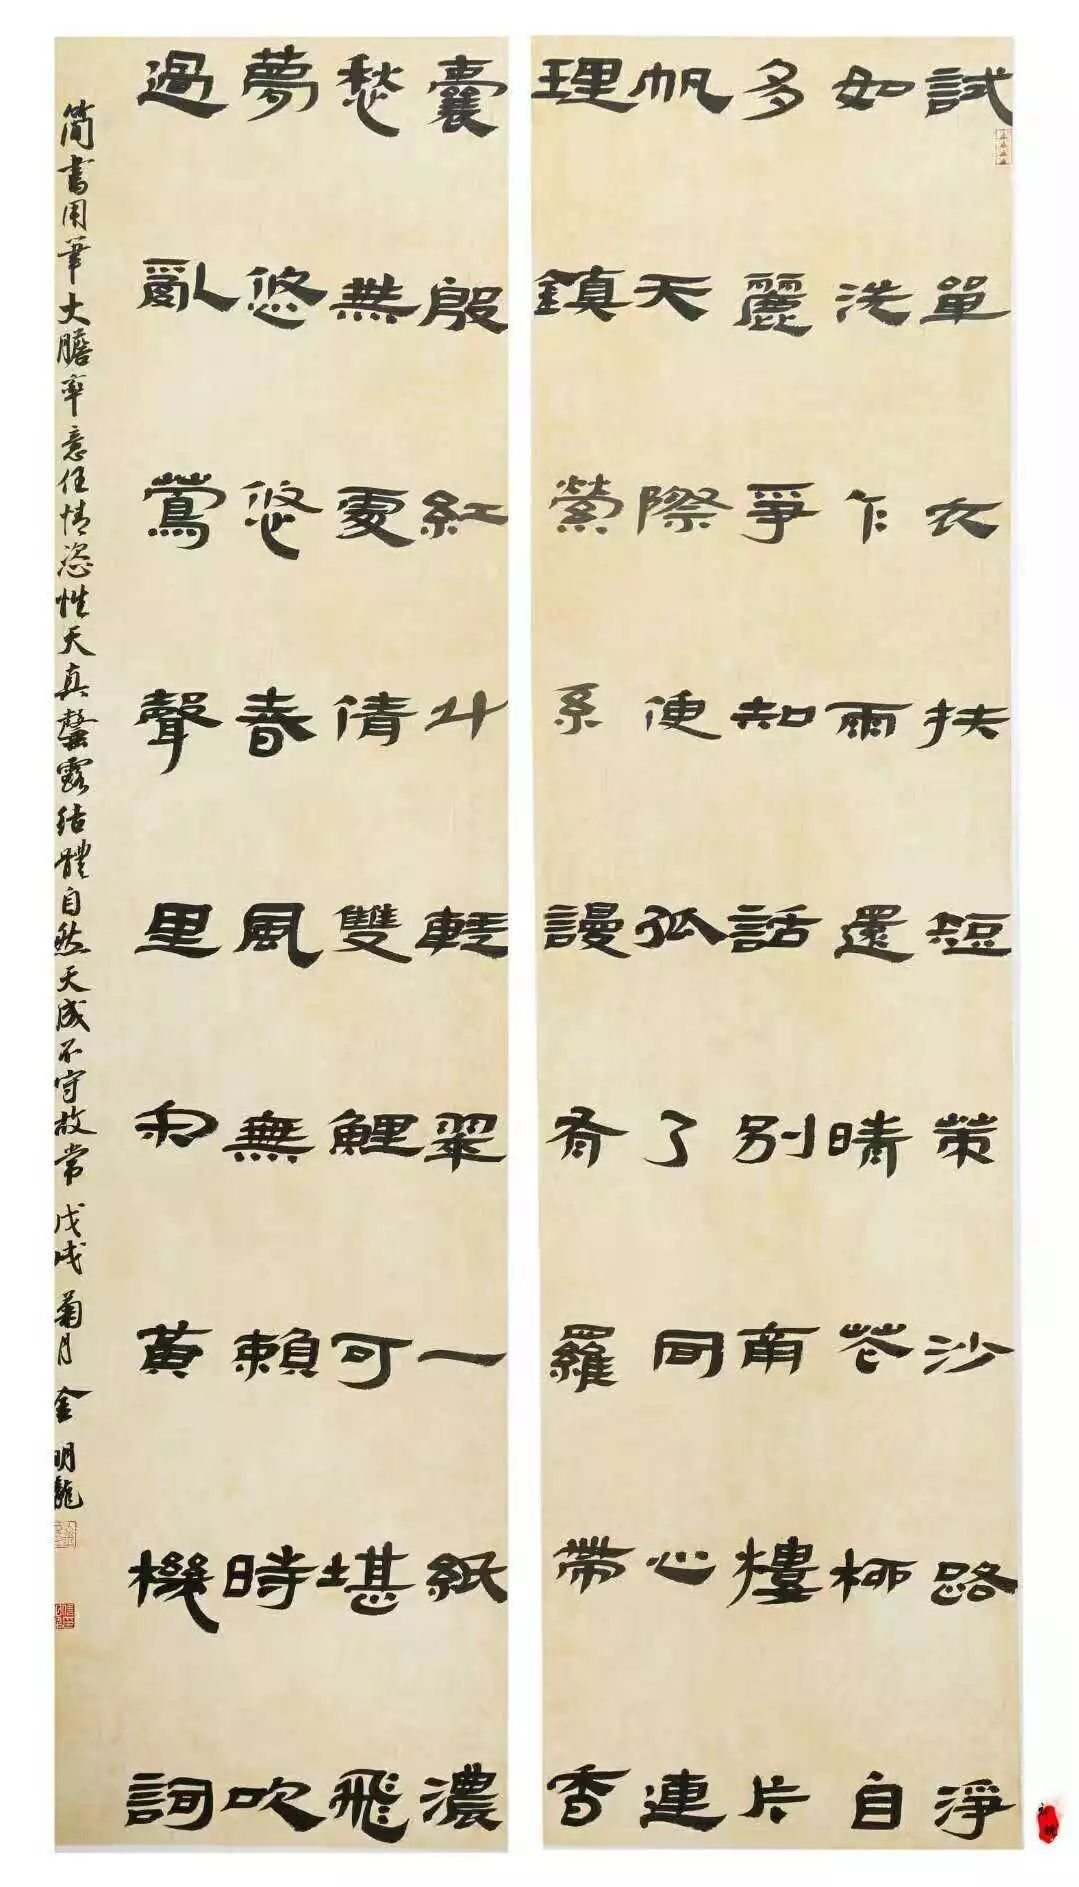 試單衣扶短策沙路淨
如洗乍雨還晴花柳自
多麗爭知話別南樓片
帆天際便孤了同心連
理鎮縈系謾有羅帶香
囊殷紅斗輕翠一紙濃
愁無處倩雙鯉可堪飛
夢悠悠春風無賴時吹
過亂鶯聲里和黃機詞
簡書用筆大膽率意任情恣性天真盡露結體自然天成不守故常 戊戌菊月 金明龍